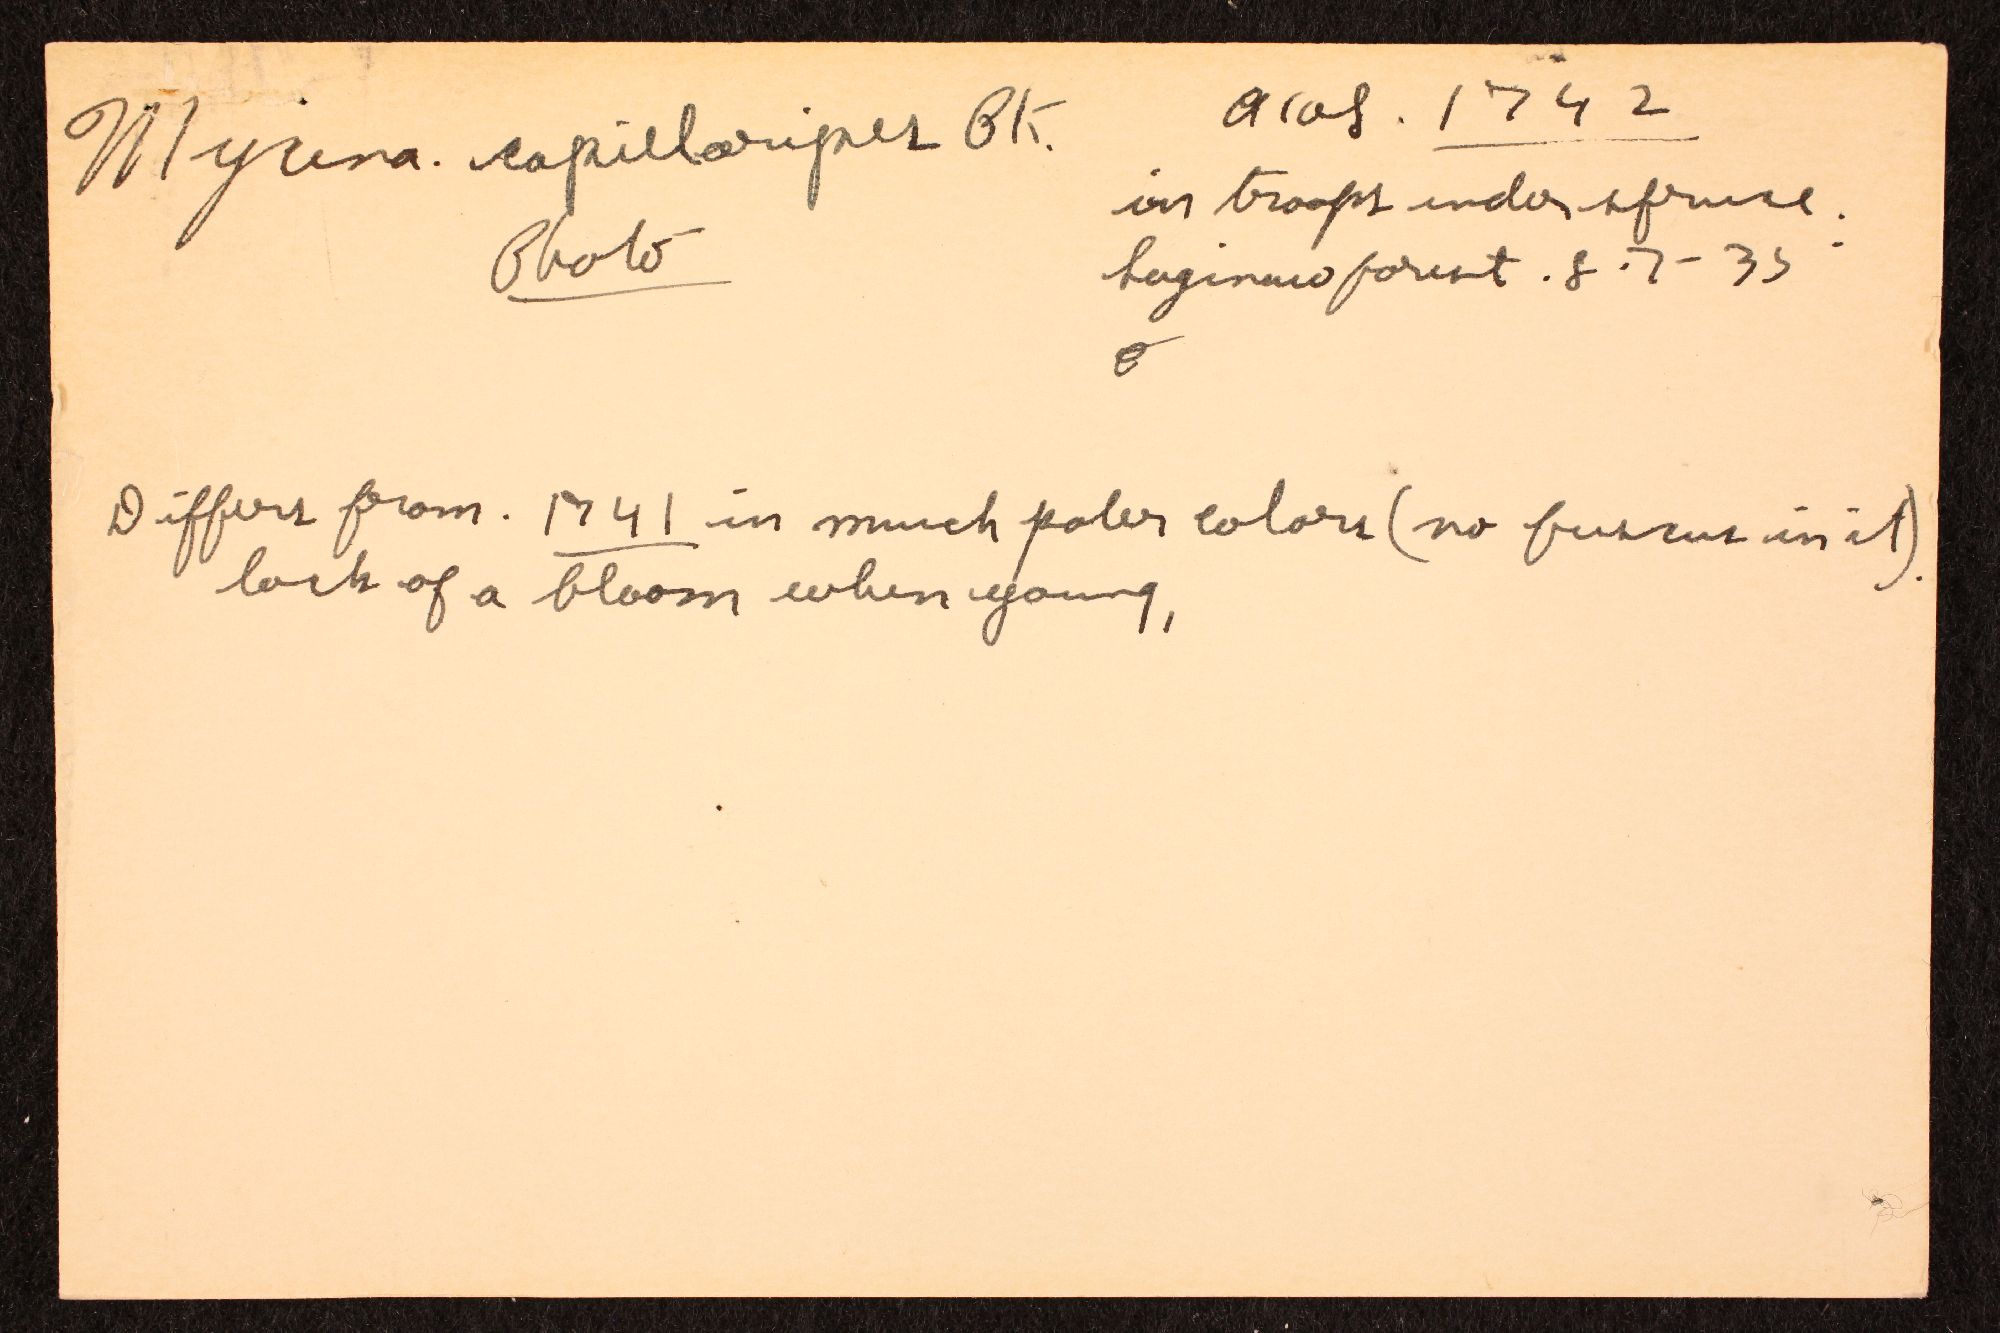 Mycena. capillaripes Pk.
Photo
acos. 1742
in troops under spruce.
Saginaw forest. 8-7-35
Differs from. 1741 in much paler colors (no fuscus in it).
lack of a bloom when young,